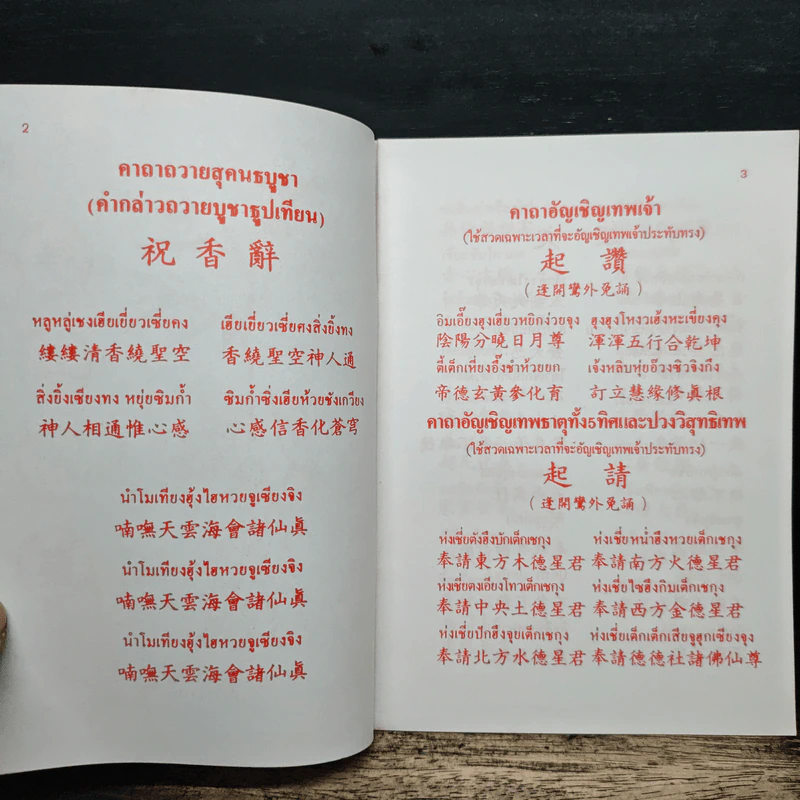 2
คาถาถวายสุคนธบูชา
(คำกล่าวถวายบูชาธูปเทียน)
祝香辭
หลูหลู่เชงเฮียเยี่ยวเซี่ยคง เฮียเยี่ยวเซี่ยคงสิ่งยิ้งทง
縷縷清香繞聖空 香繞聖空神人通
สิ่งยิ้งเซียงทง หยุ่ยซิมก้ำ ซิมก้ำซิ่งเฮียห้วยชังเกวียง
神人相通惟心感 心感信香化蒼穹
นำโมเทียงฮุ้งไฮหวยจูเซียงจิง
喃嘸天雲海會諸仙眞
นำโมเทียงฮุ้งไฮหวยจูเซียงจิง
喃嘸天雲海會諸仙眞
นำโมเทียงฮุ้งไฮหวยจูเซียงจิง
喃嘸天雲海會諸仙眞
3
คาถาอัญเชิญเทพเจ้า
(ใช้สวดเฉพาะเวลาที่จะอัญเชิญเทพเจ้าประทับทรง)
起讚
(逢開鸞外免誦)
อิมเอี๊ยงฮุงเฮี่ยวหยิกง่วยจุง ฮุงฮุงโหงวเฮ้งหะเขี่ยงคุง
陰陽分曉日月尊 渾渾五行合乾坤
ตี้เต็กเหี่ยงอึ้งชำห้วยยก เจ้งหลิบหุ่ยอ๊วงซิวจิงกึง
帝德玄黃參化育 訂立慧緣修眞根
คาถาอัญเชิญเทพธาตุทั้ง5ทิศและปวงวิสุทธิเทพ
(ใช้สวดเฉพาะเวลาที่จะอัญเชิญเทพเจ้าประทับทรง)
起請
(逢開鸞外免誦)
ห่งเชี่ยตังฮึงบักเต็กเชกุง ห่งเชี่ยหน่ำฮึงหวยเต็กเชกุง
奉請東方木德星君 奉請南方火德星君
ห่งเชี่ยตงเอียงโทวเต็กเชกุง ห่งเชี่ยไซฮึงกิมเต็กเชกุง
奉請中央土德星君 奉請西方金德星君
ห่งเชี่ยปักฮึงจุยเต็กเชกุง ห่งเชี่ยเต็กเต็กเสียจูฮุกเซียงจุง
奉請北方水德星君 奉請德德社諸佛仙尊